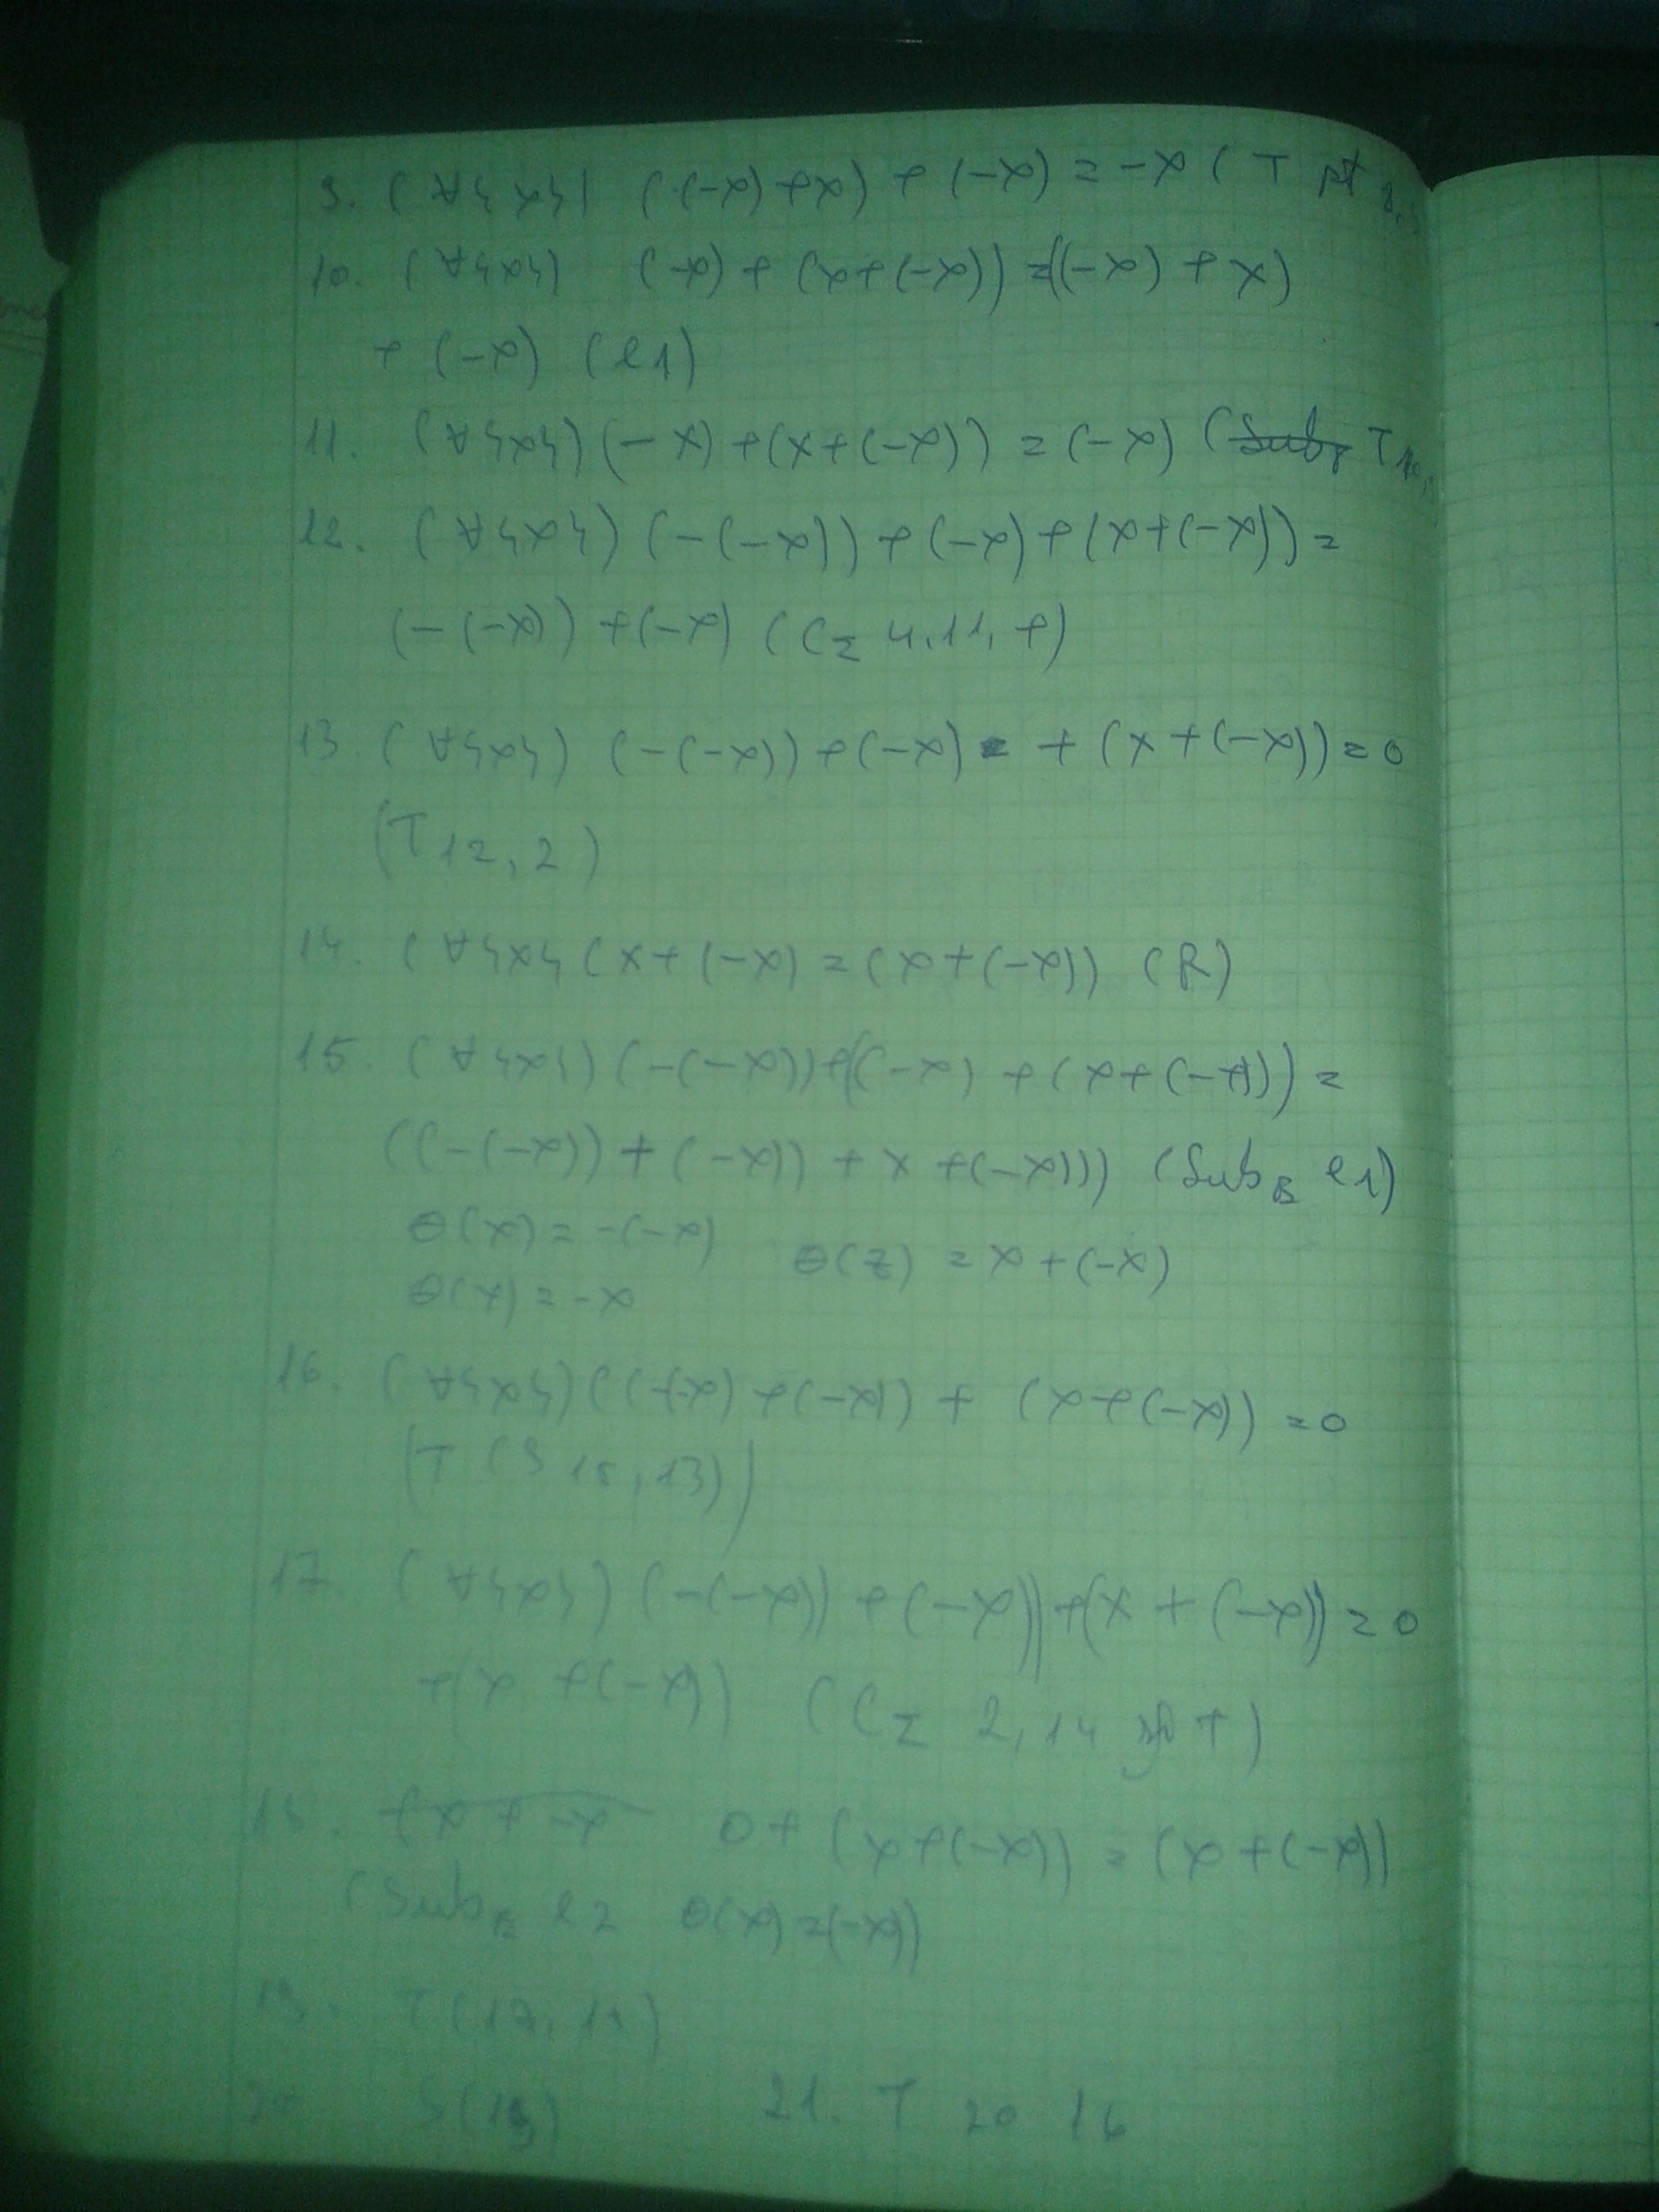 9. (∀{x}) ((-x)+x) + (-x) = -x (T pt 8,
10. (∀{x}) (-x) + (x+(-x)) = ((-x) + x)
+ (-x) (e1)
11. (∀{x}) (-x) + (x+(-x)) = (-x) (Sub T 10,
12. (∀{x}) (-(-x)) + (-x) + (x+(-x)) =
(-(-x)) + (-x) (CΣ 4,11, +)
13. (∀{x}) (-(-x)) + (-x) + (x+(-x)) = 0
(T 12, 2)
14. (∀{x} (x+(-x) = (x+(-x)) (R)
15. (∀{x}) (-(-x)) + ((-x) + (x+(-x))) =
((-(-x)) + (-x)) + x + (-x))) (SubB e1)
θ(x) = -(-x) θ(z) = x + (-x)
θ(y) = -x
16. (∀{x}) ((-(-x) + (-x)) + (x+(-x)) = 0
(T (S 15, 13))
17. (∀{x}) (-(-x)) + (-x)) + (x + (-x)) = 0
+ (x + (-x)) (CΣ 2, 14 +)
18. 0 + (x+(-x)) = (x + (-x))
(SubB e2 θ(x) = (-x))
19. T(17, 18)
20 S(19) 21. T 20 16